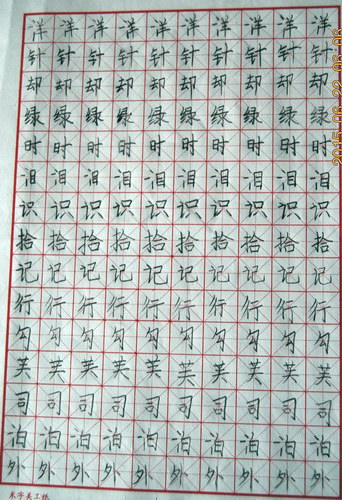 洋洋洋洋洋洋洋洋洋洋
针针针针针针针针针针
却却却却却却却却却却
绿绿绿绿绿绿绿绿绿绿
时时时时时时时时时时
泪泪泪泪泪泪泪泪泪泪
识识识识识识识识识识
拾拾拾拾拾拾拾拾拾拾
记记记记记记记记记记
行行行行行行行行行行
勾勾勾勾勾勾勾勾勾勾
芙芙芙芙芙芙芙芙芙芙
司司司司司司司司司司
泊泊泊泊泊泊泊泊泊泊
外外外外外外外外外外
米字美工格